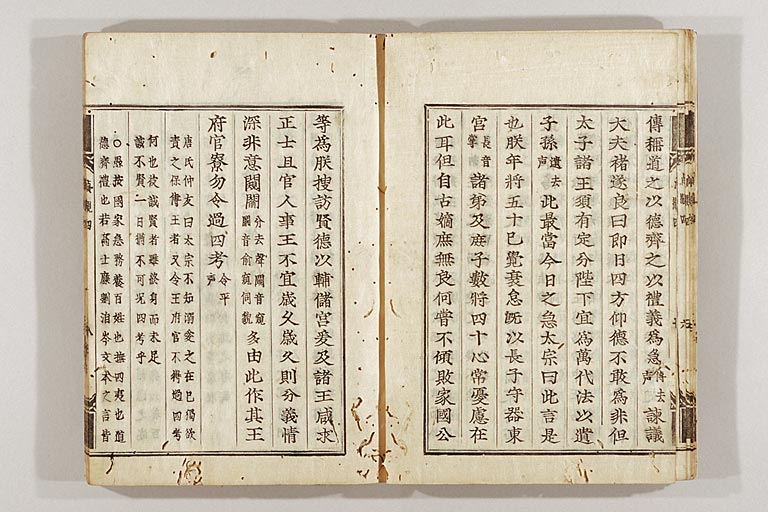 傳稱道之以德齊之以禮義爲急傳去聲諫議
大夫褚遂良曰即日四方仰德不敢爲非但
太子諸王須有定分陛下宜爲萬代法以遺
子孫遺去聲此最當今日之急太宗曰此言是
也朕年將五十已覺衰怠旣以長子守器東
宮長音掌諸弟及庶子數將四十心常憂慮在
此耳但自古嫡庶無良何嘗不傾敗家國公
等爲朕搜訪賢德以輔儲宮爰及諸王咸求
正士且官人事王不宜歲久歲久則分義情
深非意闚分去聲闚音窺音俞窺伺貌多由此作其王
府官寮勿令過四考令平聲
唐氏仲友曰太宗不知溺愛之在已獨欲
責之保傅王者又令王府官不得過四考
何也彼誠賢者雖終身而未足
誠不賢一日猶不可况四考乎
○愚按國家急務養百姓也撫四夷也道
德齊禮也若高士廉劉洎岑文本之言皆
貞觀四